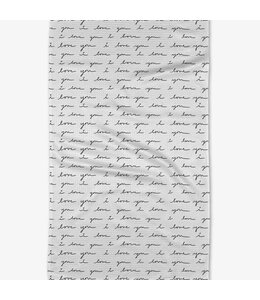 i love you i love you i
you i love you i love
i love you i love you i
you i love you i love
i love you i love you i
you i love you i love
i love you i love you i
you i love you i love
i love you i love you i
you i love you i love
i love you i love you i
you i love you i love
i love you i love you i
you i love you i love
i love you i love you i
you i love you i love
i love you i love you i
you i love you i love
i love you i love you i
you i love you i love